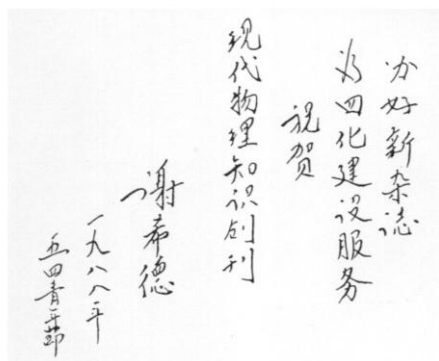 办好新杂志
为四化建设服务
祝贺
现代物理知识创刊
谢希德
一九八八年
五四青年节